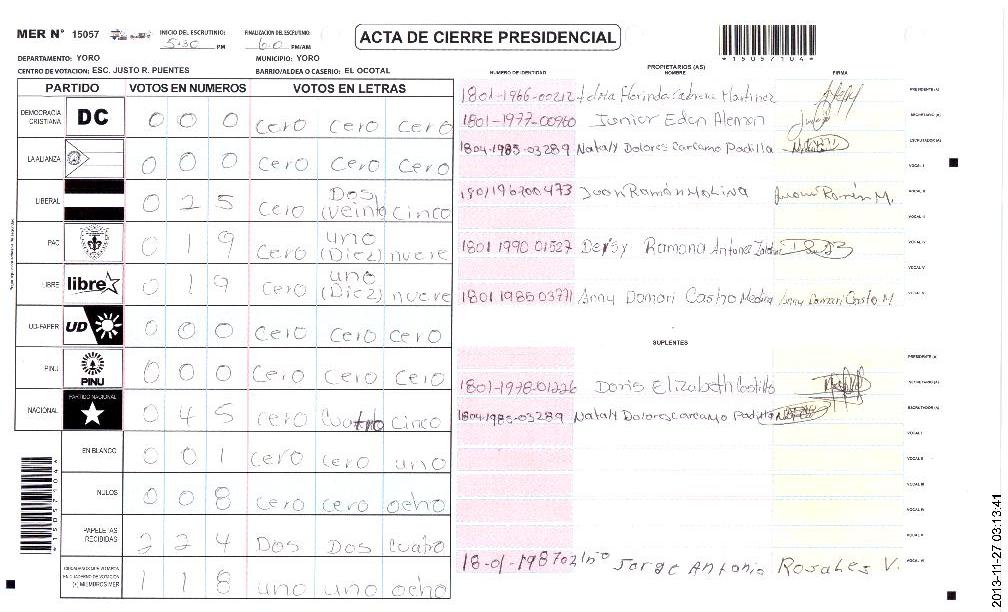 MER N° 15057 INICIO DEL ESCRUTINIO: FINALIZACION DEL ESCRUTINIO: ACTA DE CIERRE PRESIDENCIAL
5:30 PM 6:0 PM/AM *15057104*
DEPARTAMENTO: YORO MUNICIPIO: YORO
CENTRO DE VOTACION: ESC. JUSTO R. PUENTES BARRIO/ALDEA O CASERIO: EL OCOTAL
PARTIDO VOTOS EN NUMEROS VOTOS EN LETRAS
DEMOCRACIA CRISTIANA DC 0 0 0 cero cero cero
LA ALIANZA 0 0 0 cero cero cero
LIBERAL 0 2 5 cero Dos (veinte) cinco
PAC 0 1 9 cero uno (Diez) nueve
LIBRE libre 0 1 9 cero uno (Diez) nueve
UD-FAPER UD 0 0 0 cero cero cero
PINU PINU 0 0 0 cero cero cero
NACIONAL PARTIDO NACIONAL 0 4 5 cero Cuatro cinco
EN BLANCO 0 0 1 cero cero uno
NULOS 0 0 8 cero cero ocho
PAPELETAS RECIBIDAS 2 2 4 Dos Dos cuatro
CIUDADANOS QUE VOTARON EN CUADERNO DE VOTACION (+) MIEMBROS MER 1 1 8 uno uno ocho
*15057104*
PROPIETARIOS (AS)
NUMERO DE IDENTIDAD NOMBRE FIRMA
1801-1966-00212 Florinda Martinez PRESIDENTE (A)
1801-1977-00960 Junior Eden Aleman SECRETARIO (A)
ESCRUTADOR (A)
1804-1985-03289 Nataly Dolores Carcamo Padilla
VOCAL I
1801196700473 Juan Ramón Molina Juan Ramón M. VOCAL II
VOCAL III
1801 1990 01527 Ramona Antonia VOCAL IV
VOCAL V
1801 1985 03771 Anny Damari Castro Medina Anny Damari Castro M. VOCAL VI
SUPLENTES
PRESIDENTE (A)
1801-1978-01226 Doris Elizabeth Castillo SECRETARIO (A)
1804-1985-03289 Nataly Dolores Carcamo Padilla ESCRUTADOR (A)
VOCAL I
VOCAL II
VOCAL III
VOCAL IV
VOCAL V
Jorge Antonio Rosales V. VOCAL VI
2013-11-27 03:13:41